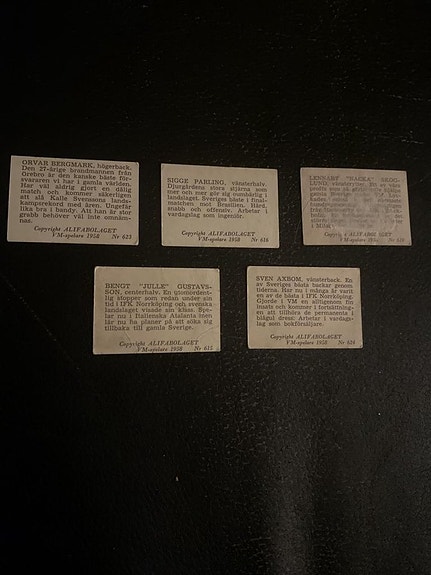 ORVAR BERGMARK, högerback.
Den 27-årige brandmannen från
Örebro är den kanske bäste för-
svararen vi har i gamla världen.
Har väl aldrig gjort en dålig
match och kommer säkerligen
att slå Kalle Svenssons lands-
kampsrekord med åren. Ungefär
lika bra i bandy. Att han är stor
grabb behöver väl inte omnäm-
nas.
Copyright ALIFABOLAGET
VM-spelare 1958 Nr 623
SIGGE PARLING, vänsterhalv.
Djurgårdens stora stjärna som
mer och mer gör sig oumbärlig i
landslaget. Sveriges bäste i final-
matchen mot Brasilien. Hård,
snabb och offensiv. Arbetar i
vardagslag som ingenjör.
Copyright ALIFABOLAGET
VM-spelare 1958 Nr 616
LENNART "NACKA" SKOG-
LUND, vänsterytter.
Copyright ALIFABOLAGET
VM-spelare
BENGT "JULLE" GUSTAVS-
SON, centerhalv. En utomordent-
lig stopper som redan under sin
tid i IFK Norrköping och svenska
landslaget visade sin klass. Spe-
lar nu i italienska Atalanta men
lär nu ha planer på att söka sig
tillbaka till gamla Sverige.
Copyright ALIFABOLAGET
VM-spelare 1958 Nr 615
SVEN AXBOM, vänsterback. En
av Sveriges bästa backar genom
tiderna. Har nu i många år varit
en av de bästa i IFK Norrköping.
Gjorde i VM en alltigenom fin
insats och kommer i fortsättning-
en att tillhöra de permanenta i
blågul dress. Arbetar i vardags-
lag som bokförsäljare.
Copyright ALIFABOLAGET
VM-spelare 1958 Nr